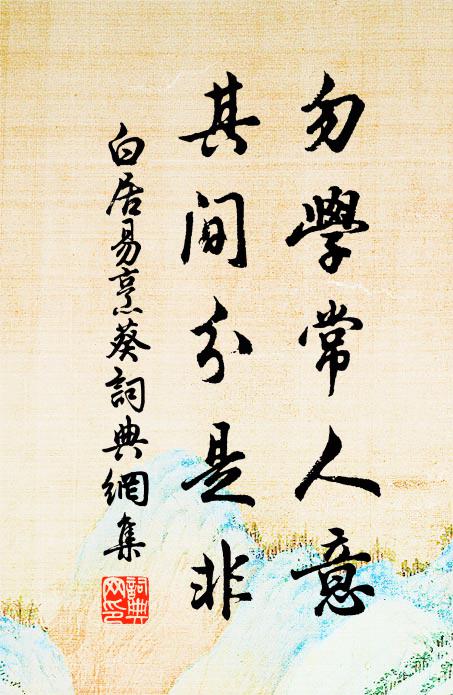 勿學常人意
其間分是非
白居易烹葵詞典網集
詞典
网印